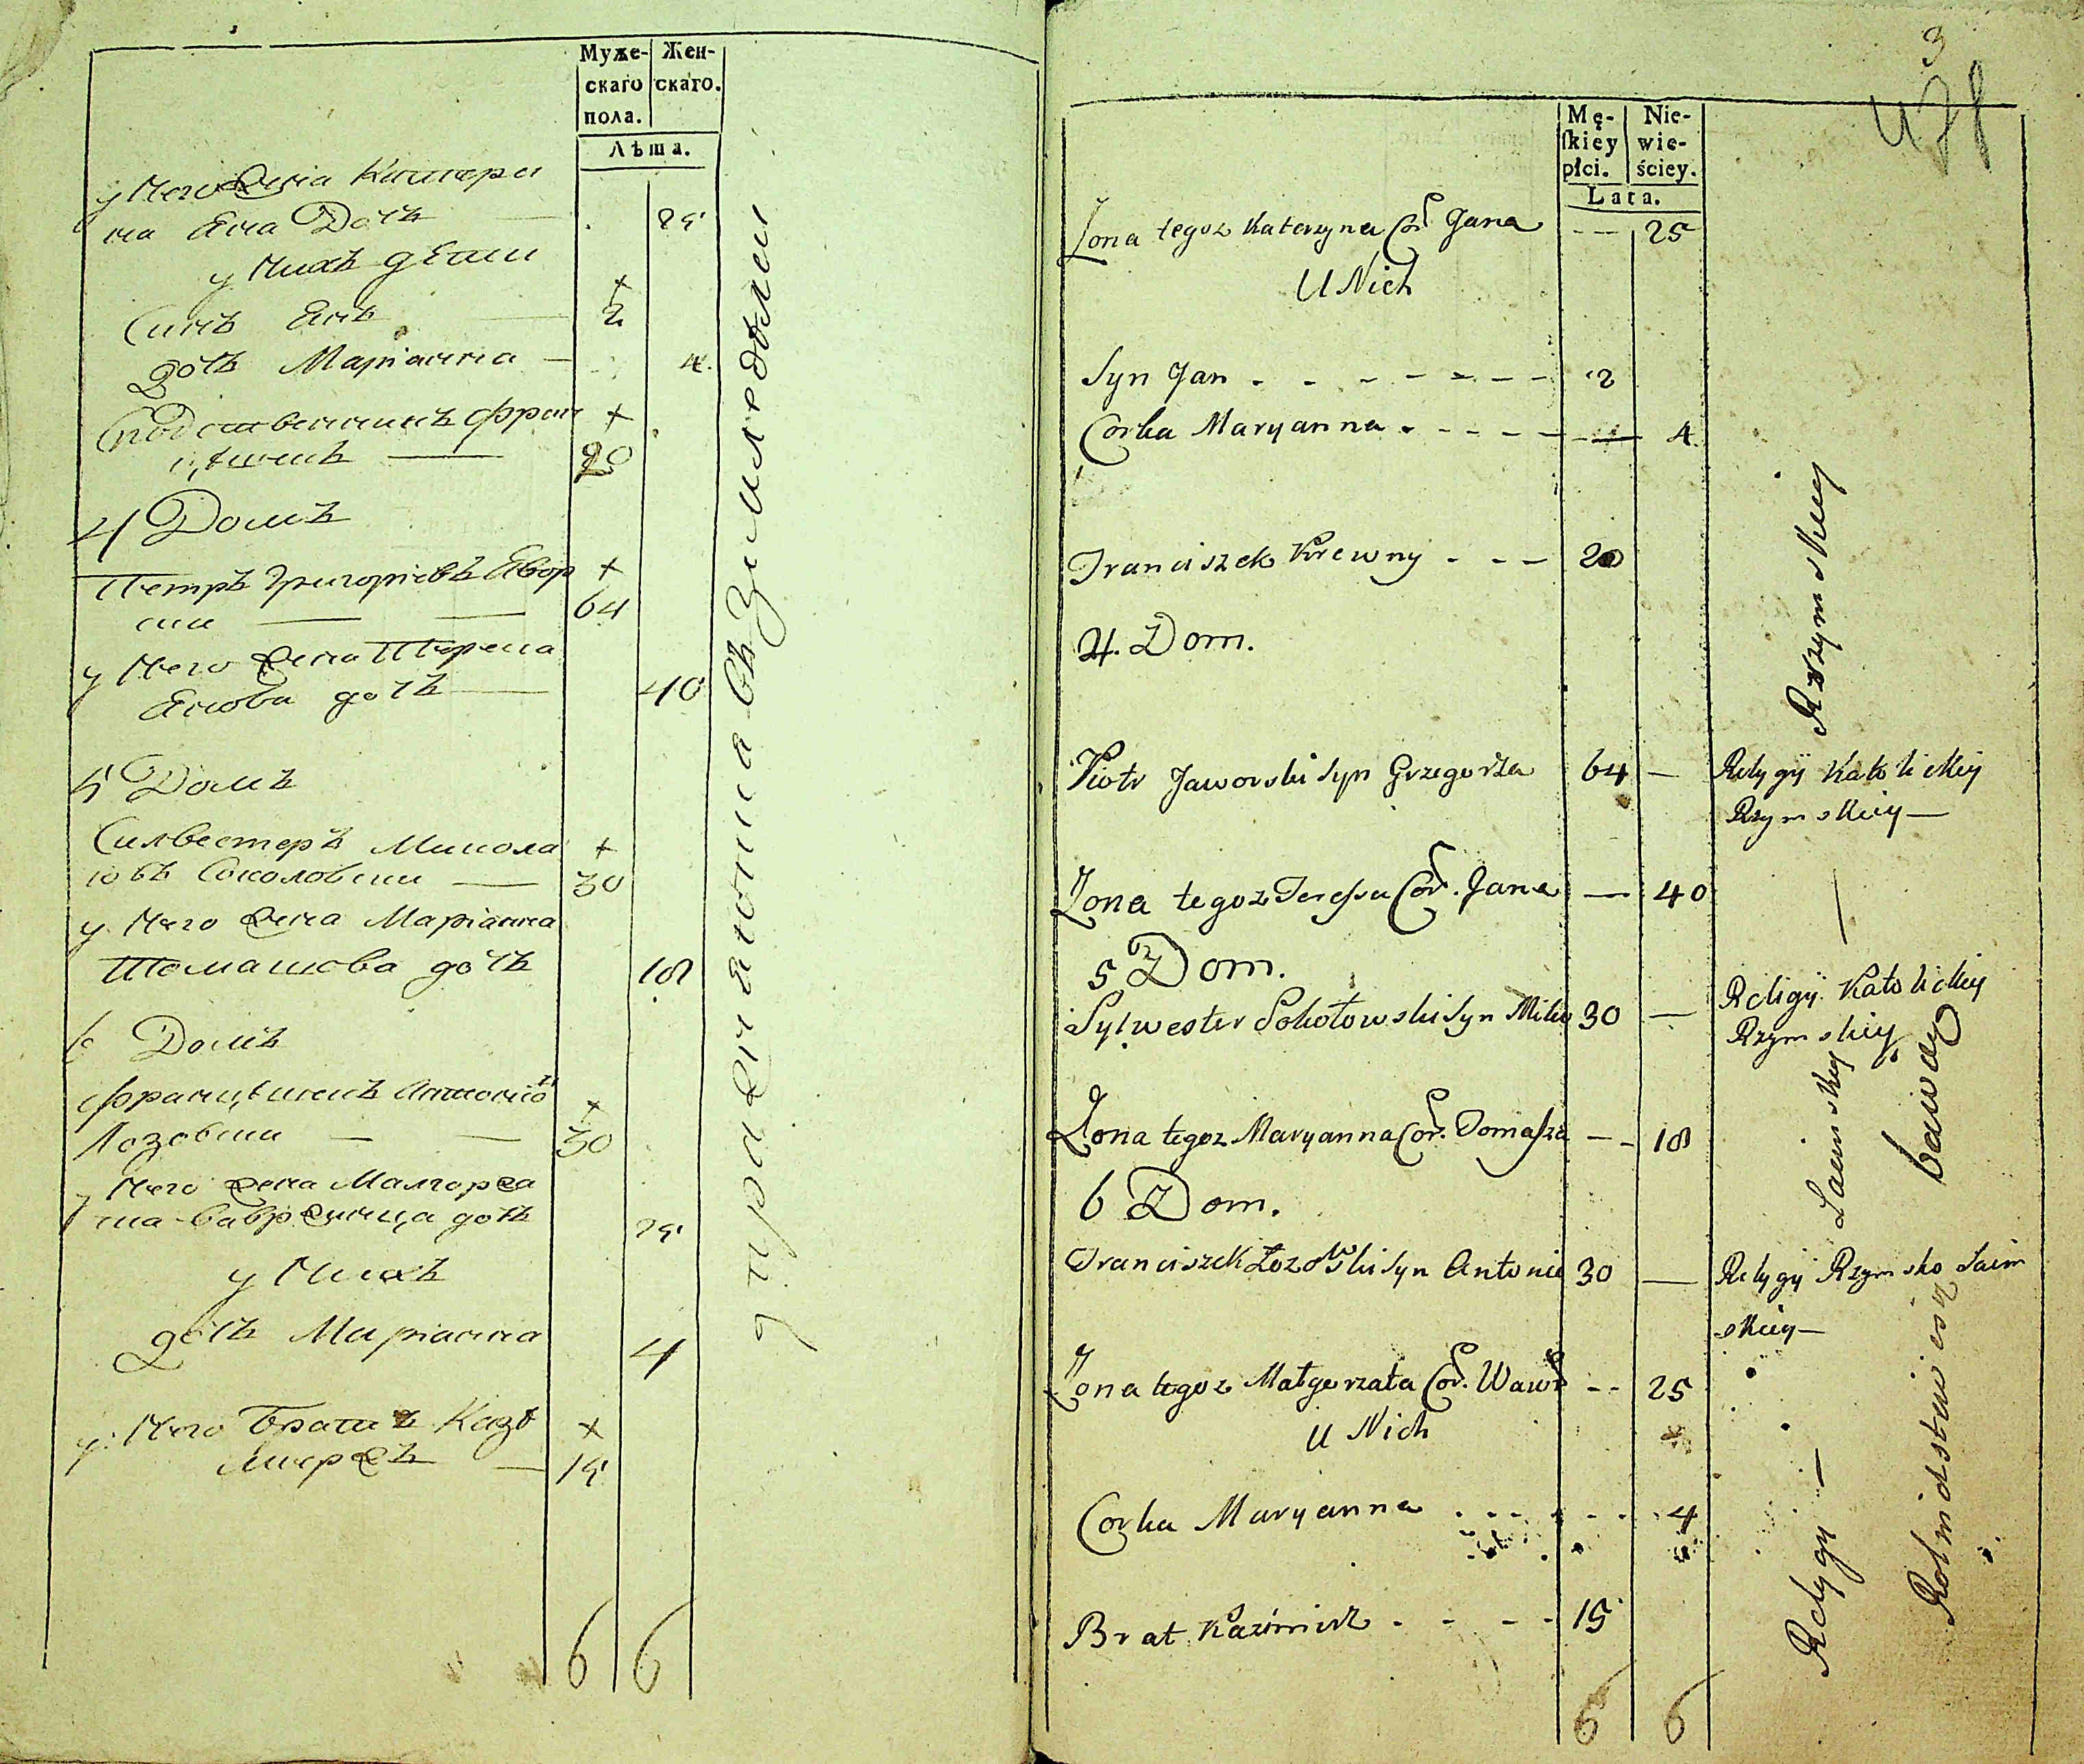 Муже-
скаго
пола.
Жен-
скаго.
Лѣта.
у Него жена Катери
на Яна Дочь 25
у Нихъ дѣти
Сынъ Янъ + 2
дочь Маріанна — 4.
Сродственникъ Фран +
цѣшекъ — 20
4 Домъ
Петръ Григорьевъ Явор +
ски — — 64
у Него жена Тереса
Янова дочь — 40
5 Домъ
Силвестеръ Микола +
ювъ Соколовски — 30
у Него жена Маріанна
Томашова дочь 18
6 Домъ
Францѣшекъ Антоніо +
Лозовски — — 30
у Него жена Малгоржа
та Вавржинца дочь 25
у Нихъ
дочь Маріанна 4
у Него Братъ Казѣ +
миржъ — 15
6 6
упражняются въ Земледѣлии
3
478
Mę-
skiey
płci.
Nie-
wie-
ściey.
Lata.
Zona tegoz Katerzyna Cor Jana -- 25
U Nich
Syn Jan - - - - - - - 2
Corka Maryanna - - - - - — 4
Franciszek Krewny - - - 20
4. Dom.
Piotr Jaworski syn Grzegorza 64 — Relygij Katolickiey
Rzymskiey —
Zona tegoz Teressa Cor. Jana — 40
5 Dom.
Sylwester Sokołowski Syn Miko 30 — Religij Katolickiey
Rzymskiey
Zona tegoz Maryanna Cor. Tomasza -- 18
6 Dom.
Franciszek Łozowski syn Antonie 30 — Relygij Rzymsko Łacin
skiey —
Zona tegoz Małgorzata Cor. Waw -- 25
U Nich
Corka Maryanna - - - - - - 4
Brat Kazimirz - - - - 15
6 6
Relygij — Łacinskiey — Rzymskiey
Rolnictwem się bawią